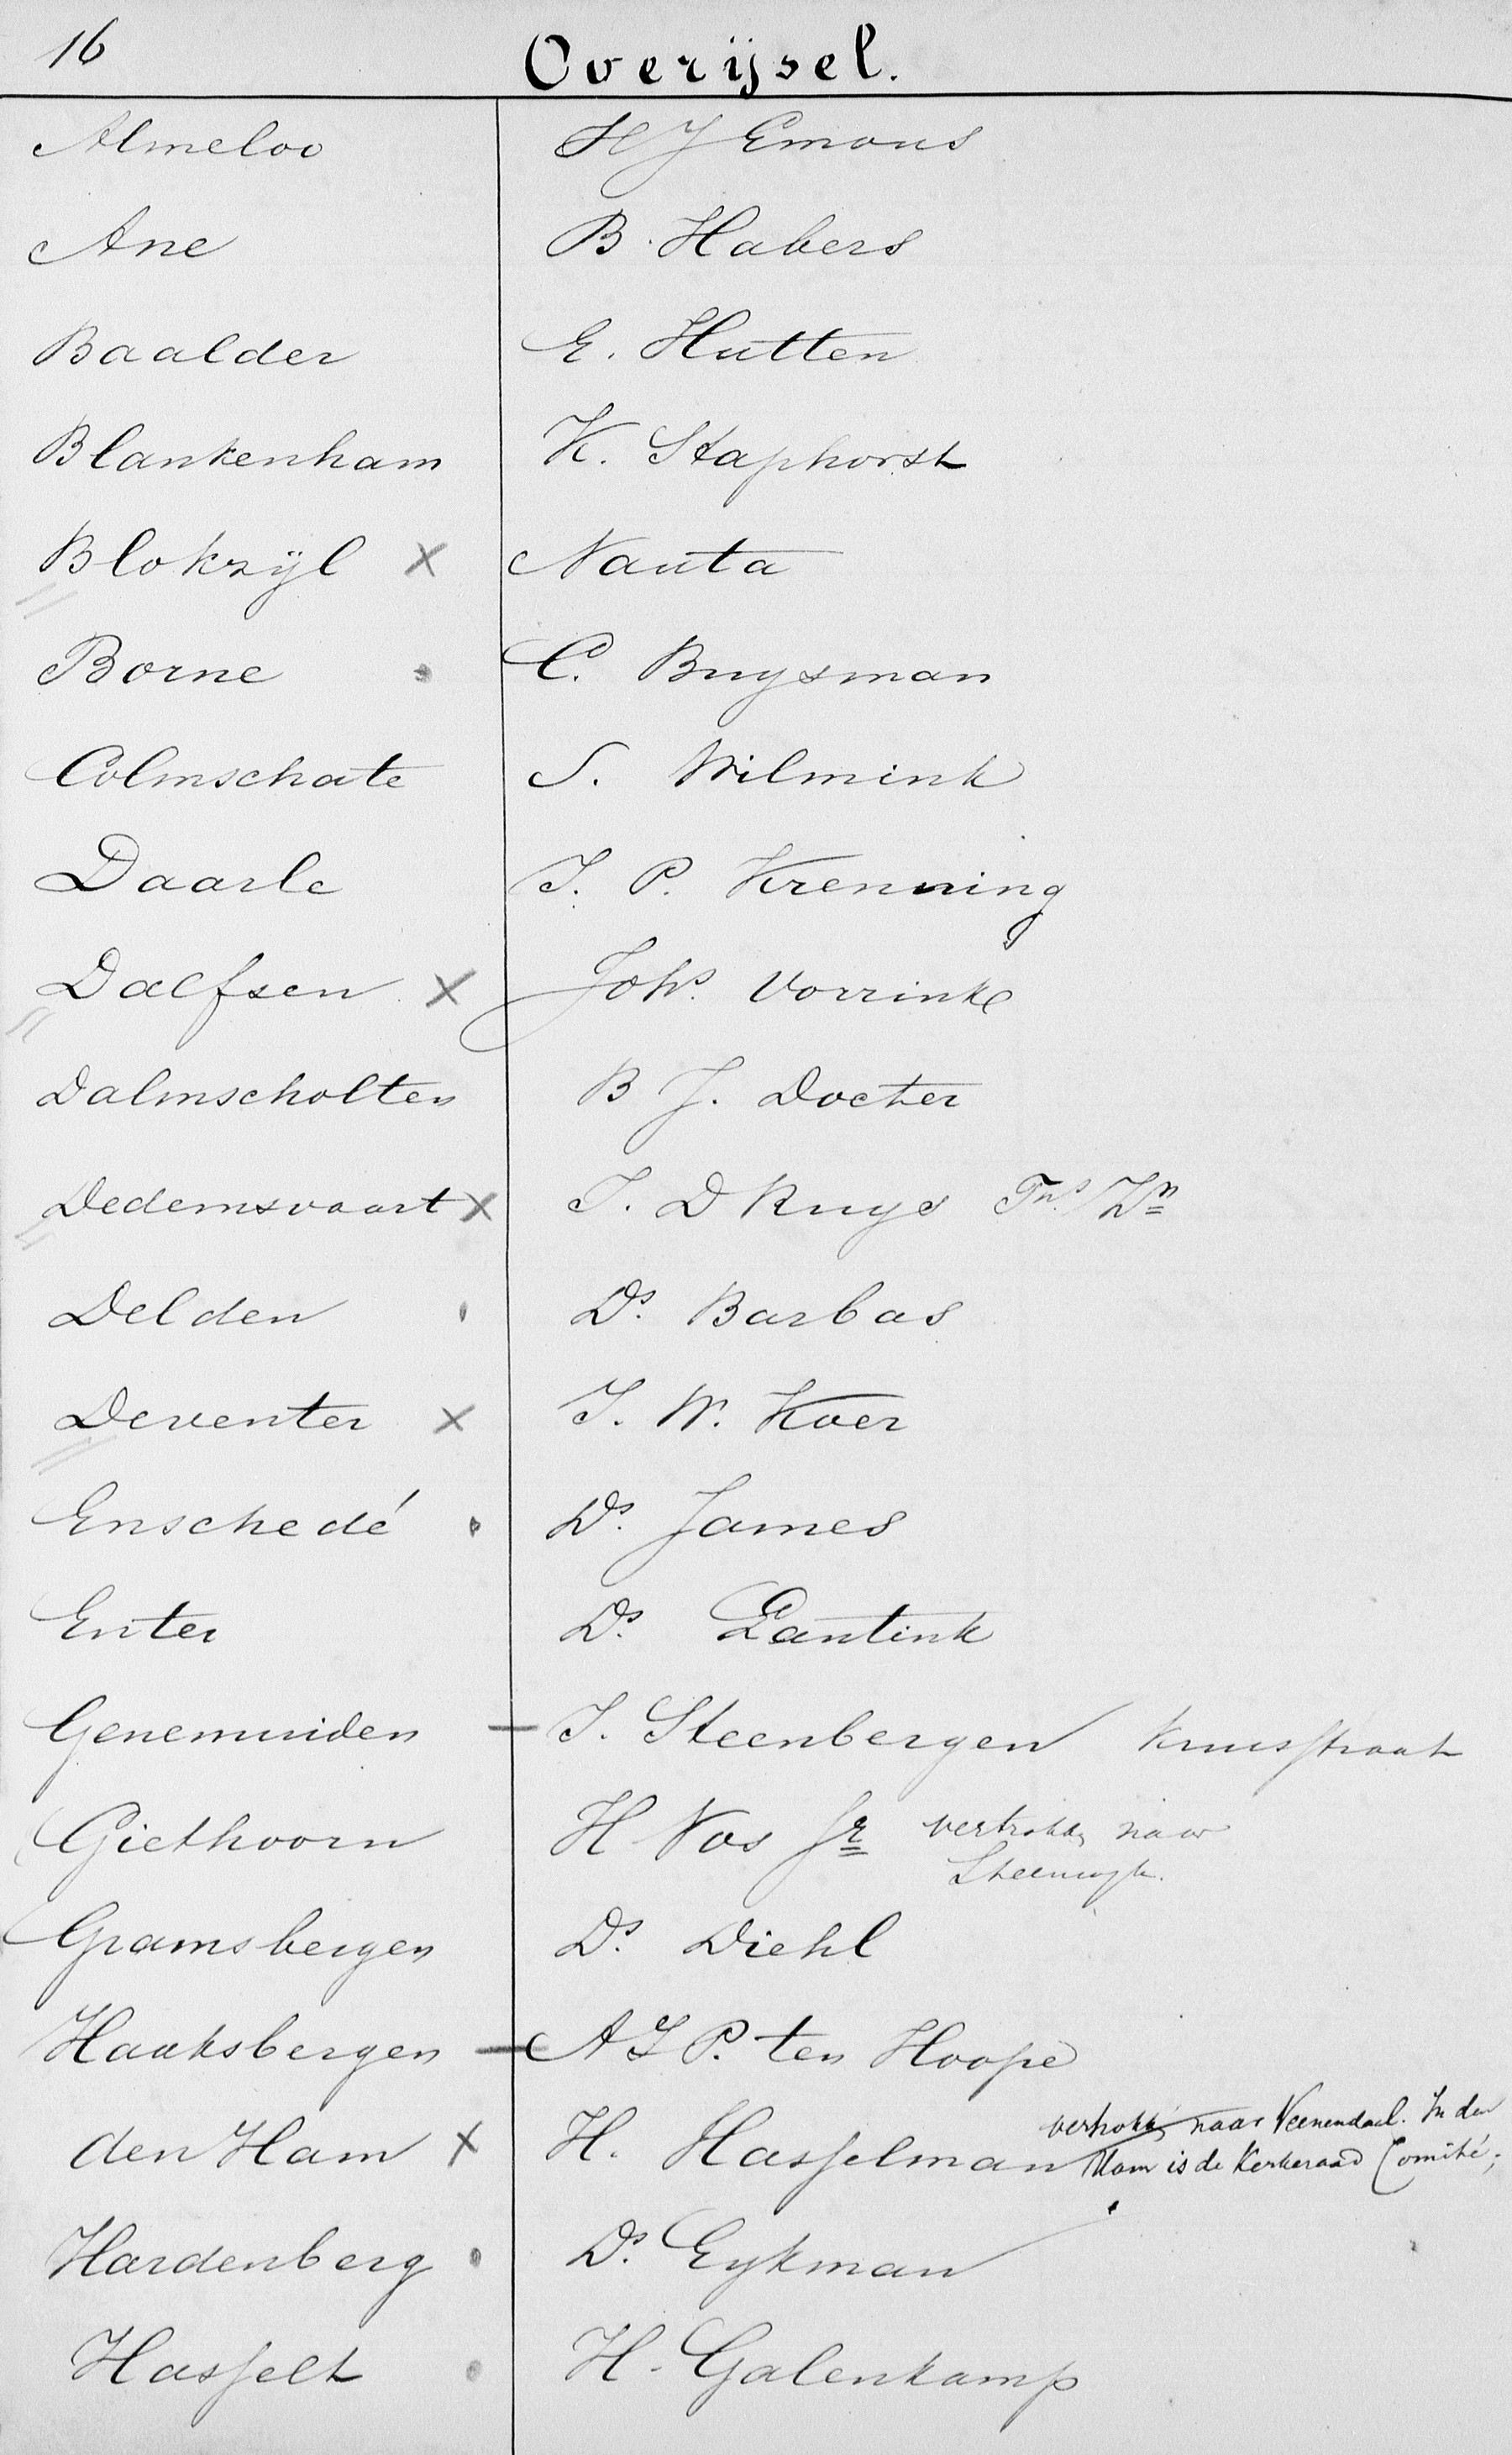 16
Overijsel.
Almeloo H J Emous
Ane B. Habers
Baalder E. Hutten
Blankenham K. Staphorst
Blokzijl x Nauta
Borne C. Buysman
Colmschate S. Wilmink
Daarle J. P. Krenning
Dalfsen x Johs. Vorrink
Dalmscholten B J. Docter
Dedemsvaart x T. D Ruys Tns. Zn
Delden Ds. Barbas
Deventer x J. W. Koer
Enschedé Ds. James
Enter Ds. Lantink
Genemuiden – J. Steenbergen Kruisstraat
Giethoorn H Vos Jr vertrokken naar
Steenwijk.
Gramsbergen Ds. Diehl
Haaksbergen – A J P. ten Hoope
den Ham x H. Hasselman vertrokken naar Veenendaal. In den
Ham is de Kerkeraad Comité;
Hardenberg Ds. Eykman
Hasselt H. Galenkamp